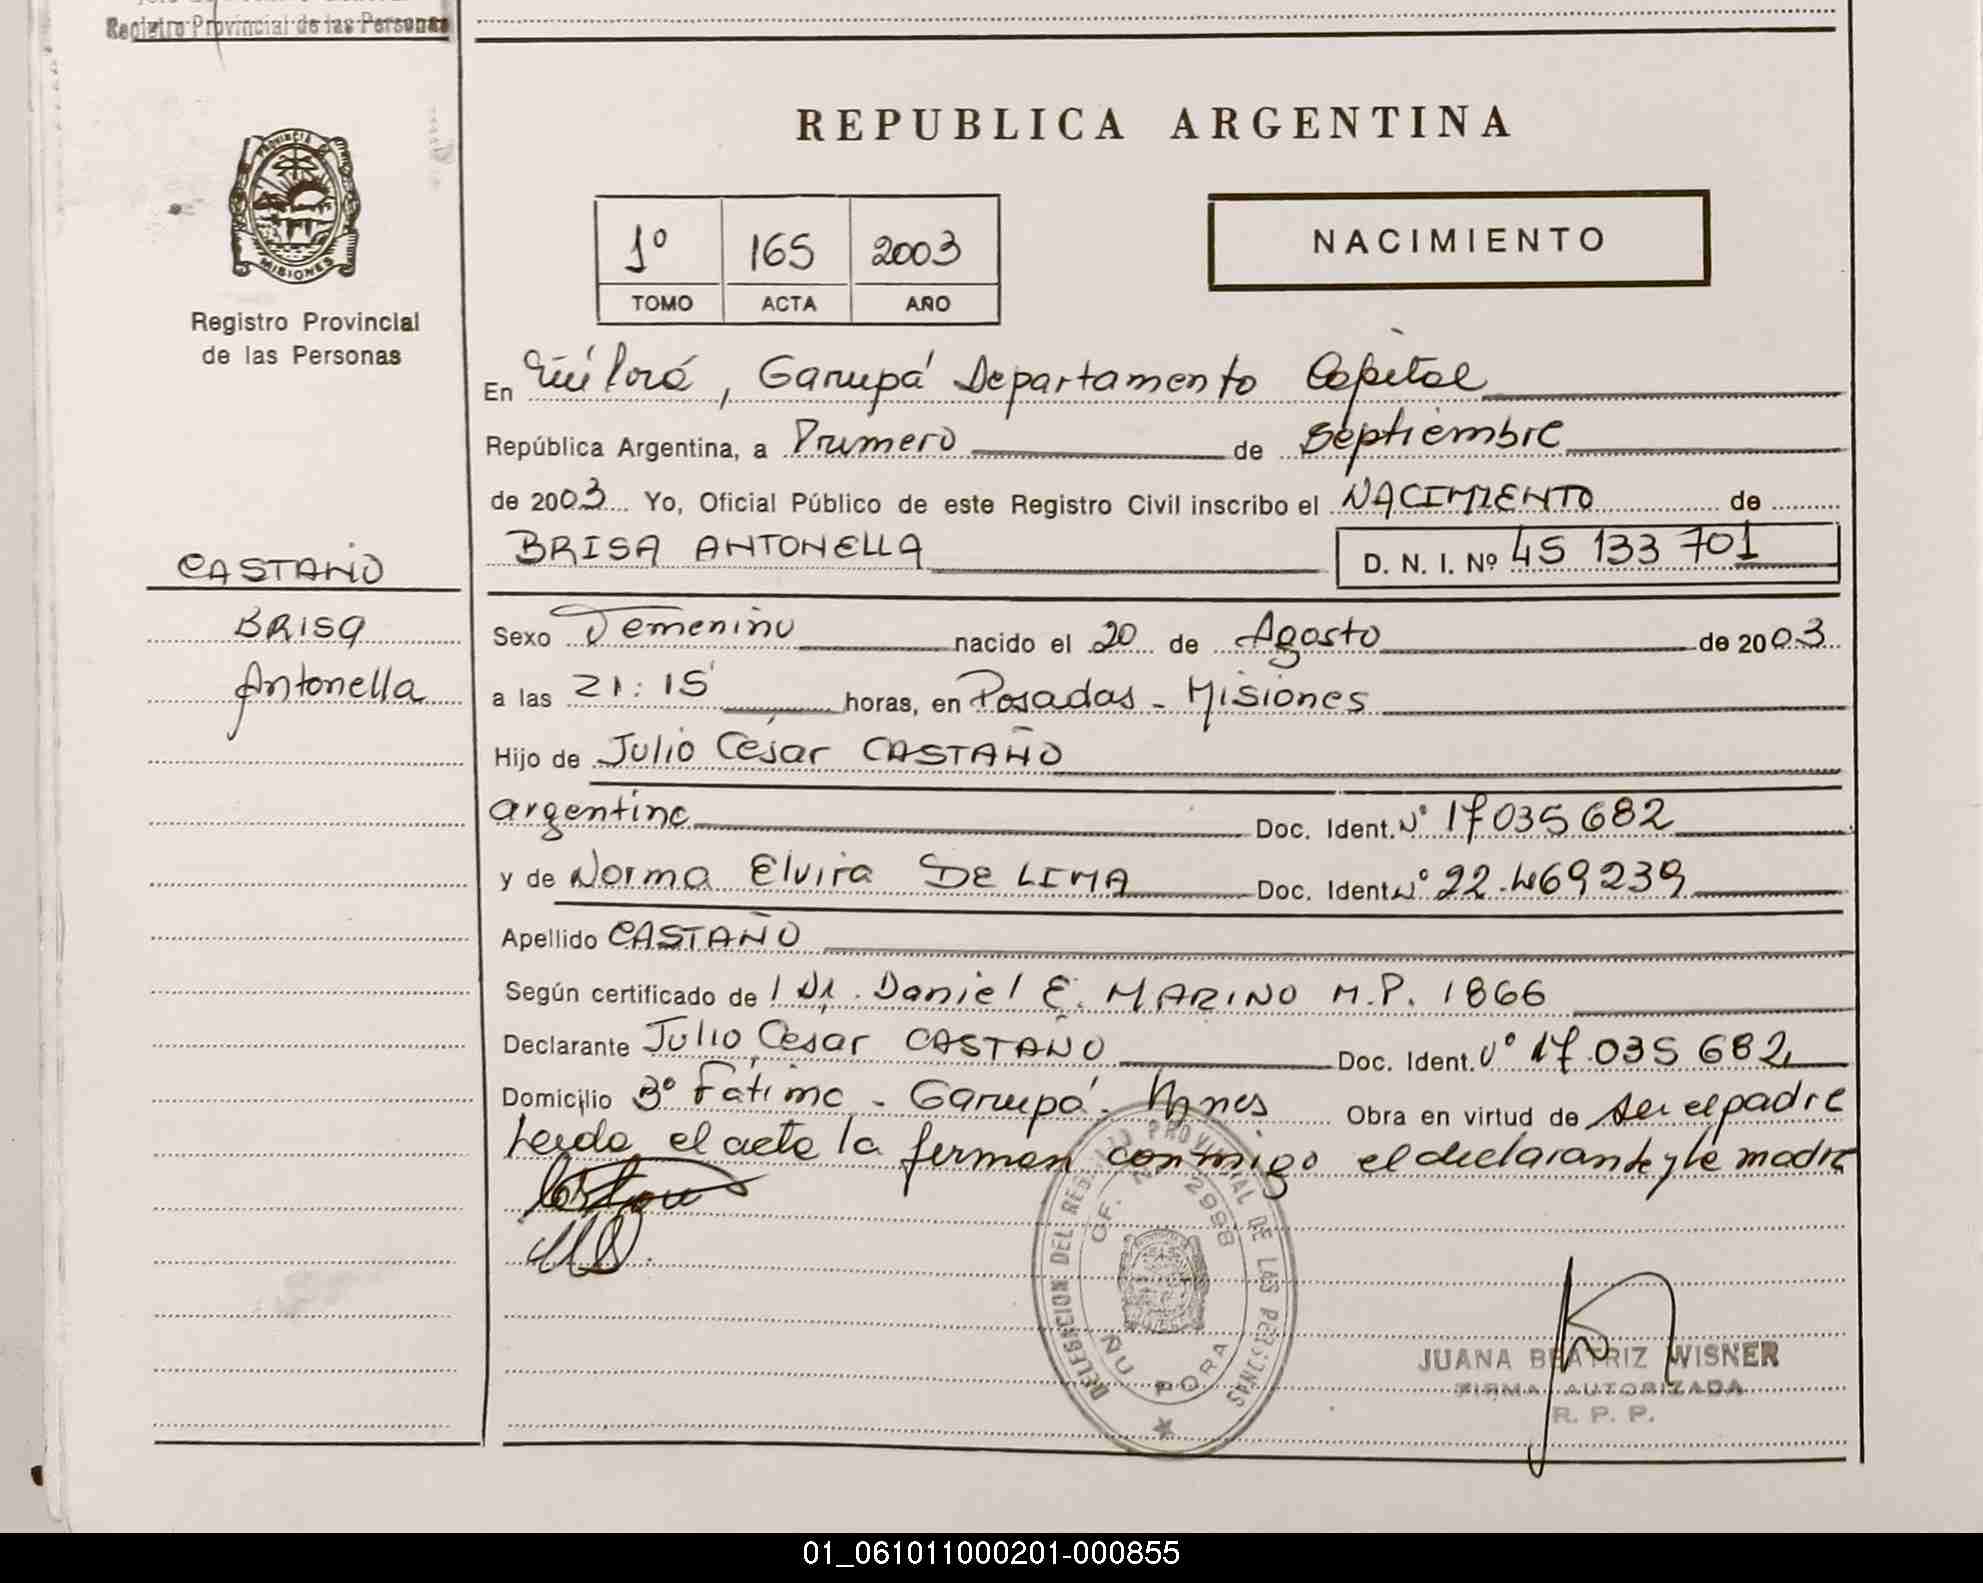 Registro Provincial de las Personas
REPUBLICA ARGENTINA
1º 165 2003
TOMO ACTA AÑO
NACIMIENTO
PROVINCIA DE
MISIONES
Registro Provincial
de las Personas
CASTAÑO
BRISA
Antonella
En Ñú Porá, Garupá Departamento Capital
República Argentina, a Primero de Septiembre
de 2003 Yo, Oficial Público de este Registro Civil inscribo el NACIMIENTO de
BRISA ANTONELLA D. N. I. Nº 45 133 701
Sexo Femenino nacido el 20 de Agosto de 2003
a las 21:15 horas, en Posadas - Misiones
Hijo de Julio César CASTAÑO
argentino Doc. Ident. Nº 17 035 682
y de Norma Elvira DE LIMA Doc. Ident Nº 22.469239
Apellido CASTAÑO
Según certificado de l Dr. Daniel E. MARINO M.P. 1866
Declarante Julio César CASTAÑO Doc. Ident. Nº 17.035 682
Domicilio Bº Fátima - Garupá - Mnes Obra en virtud de ser el padre
Leida el acta la firman conmigo el declarante y la madre
DELEGACION DEL REGISTRO PROVINCIAL DE LAS PERSONAS
OF. 2998
ÑU PORA
JUANA BEATRIZ WISNER
FIRMA AUTORIZADA
R. P. P.
01_061011000201-000855